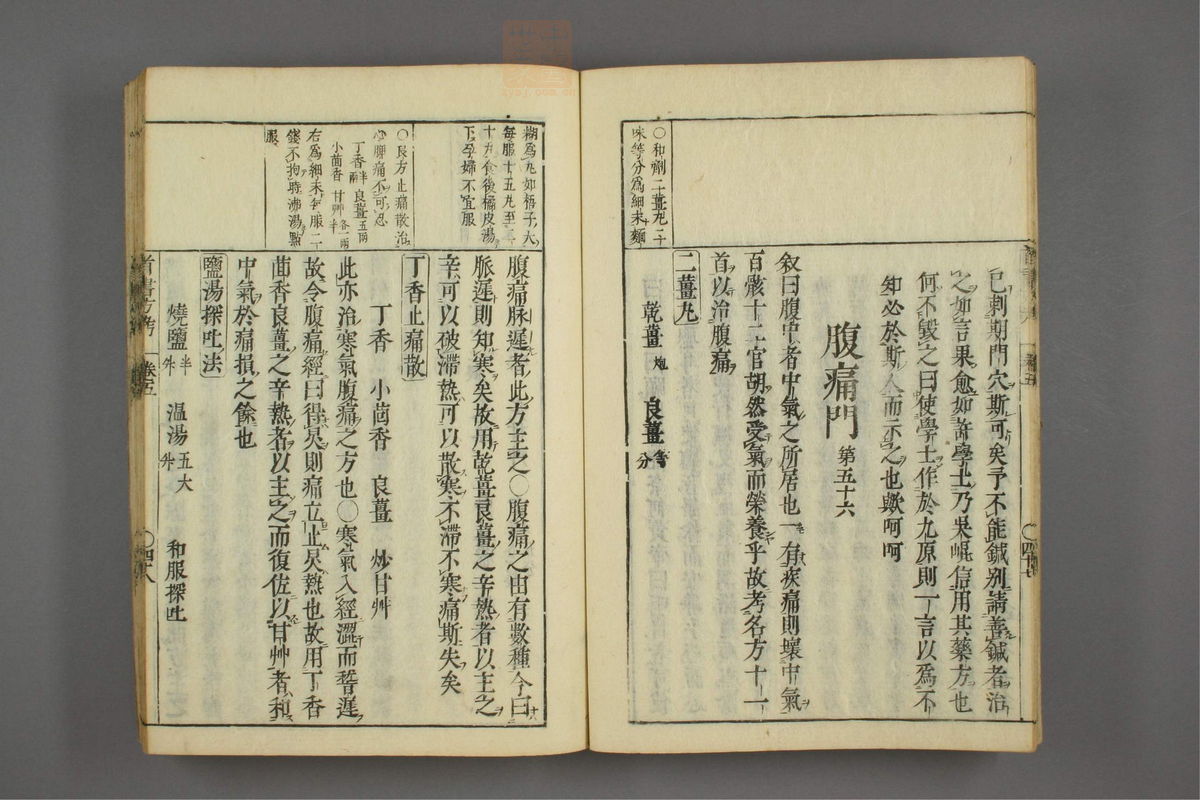 已刺期門穴斯可矣予不能鍼別請善鍼者治
之如言果愈如許學士乃果崐信用其藥方也
何不毀之曰使學士作於九原則一言以爲不
知必於斯人而示之也歟呵呵
腹痛門 第五十六
叙曰腹中者中氣之所居也一有疾痛則壞中氣
百骸十二官胡然受氣而榮養乎故考名方十一
首以治腹痛
二薑丸
乾薑 炮 良薑 等分
○和劑二薑丸二
味等分爲細末麵
糊爲丸如梧子大
每服十五丸至二
十丸食後橘皮湯
下孕婦不宜服
○良方止痛散治
心脾痛不可忍
丁香 半兩 良薑 五兩
小茴香 甘艸 各一兩半
右爲細末每服二
錢不拘時沸湯點
服
腹痛脉遲者此方主之○腹痛之由有數種今曰
脈遲則知寒矣故用乾薑良薑之辛熱者以主之
辛可以破滯熱可以散寒不滯不寒痛斯失矣
丁香止痛散
丁香 小茴香 良薑 炒甘艸
此亦治寒氣腹痛之方也○寒氣入經澀而稽遲
故令腹痛經曰得炅則痛立止炅熱也故用丁香
茴香良薑之辛熱者以主之而復佐以甘艸者和
中氣於痛損之餘也
鹽湯探吐法
燒鹽 半升 温湯 五大升 和服探吐
卷五
○四十七
卷五
○四十八